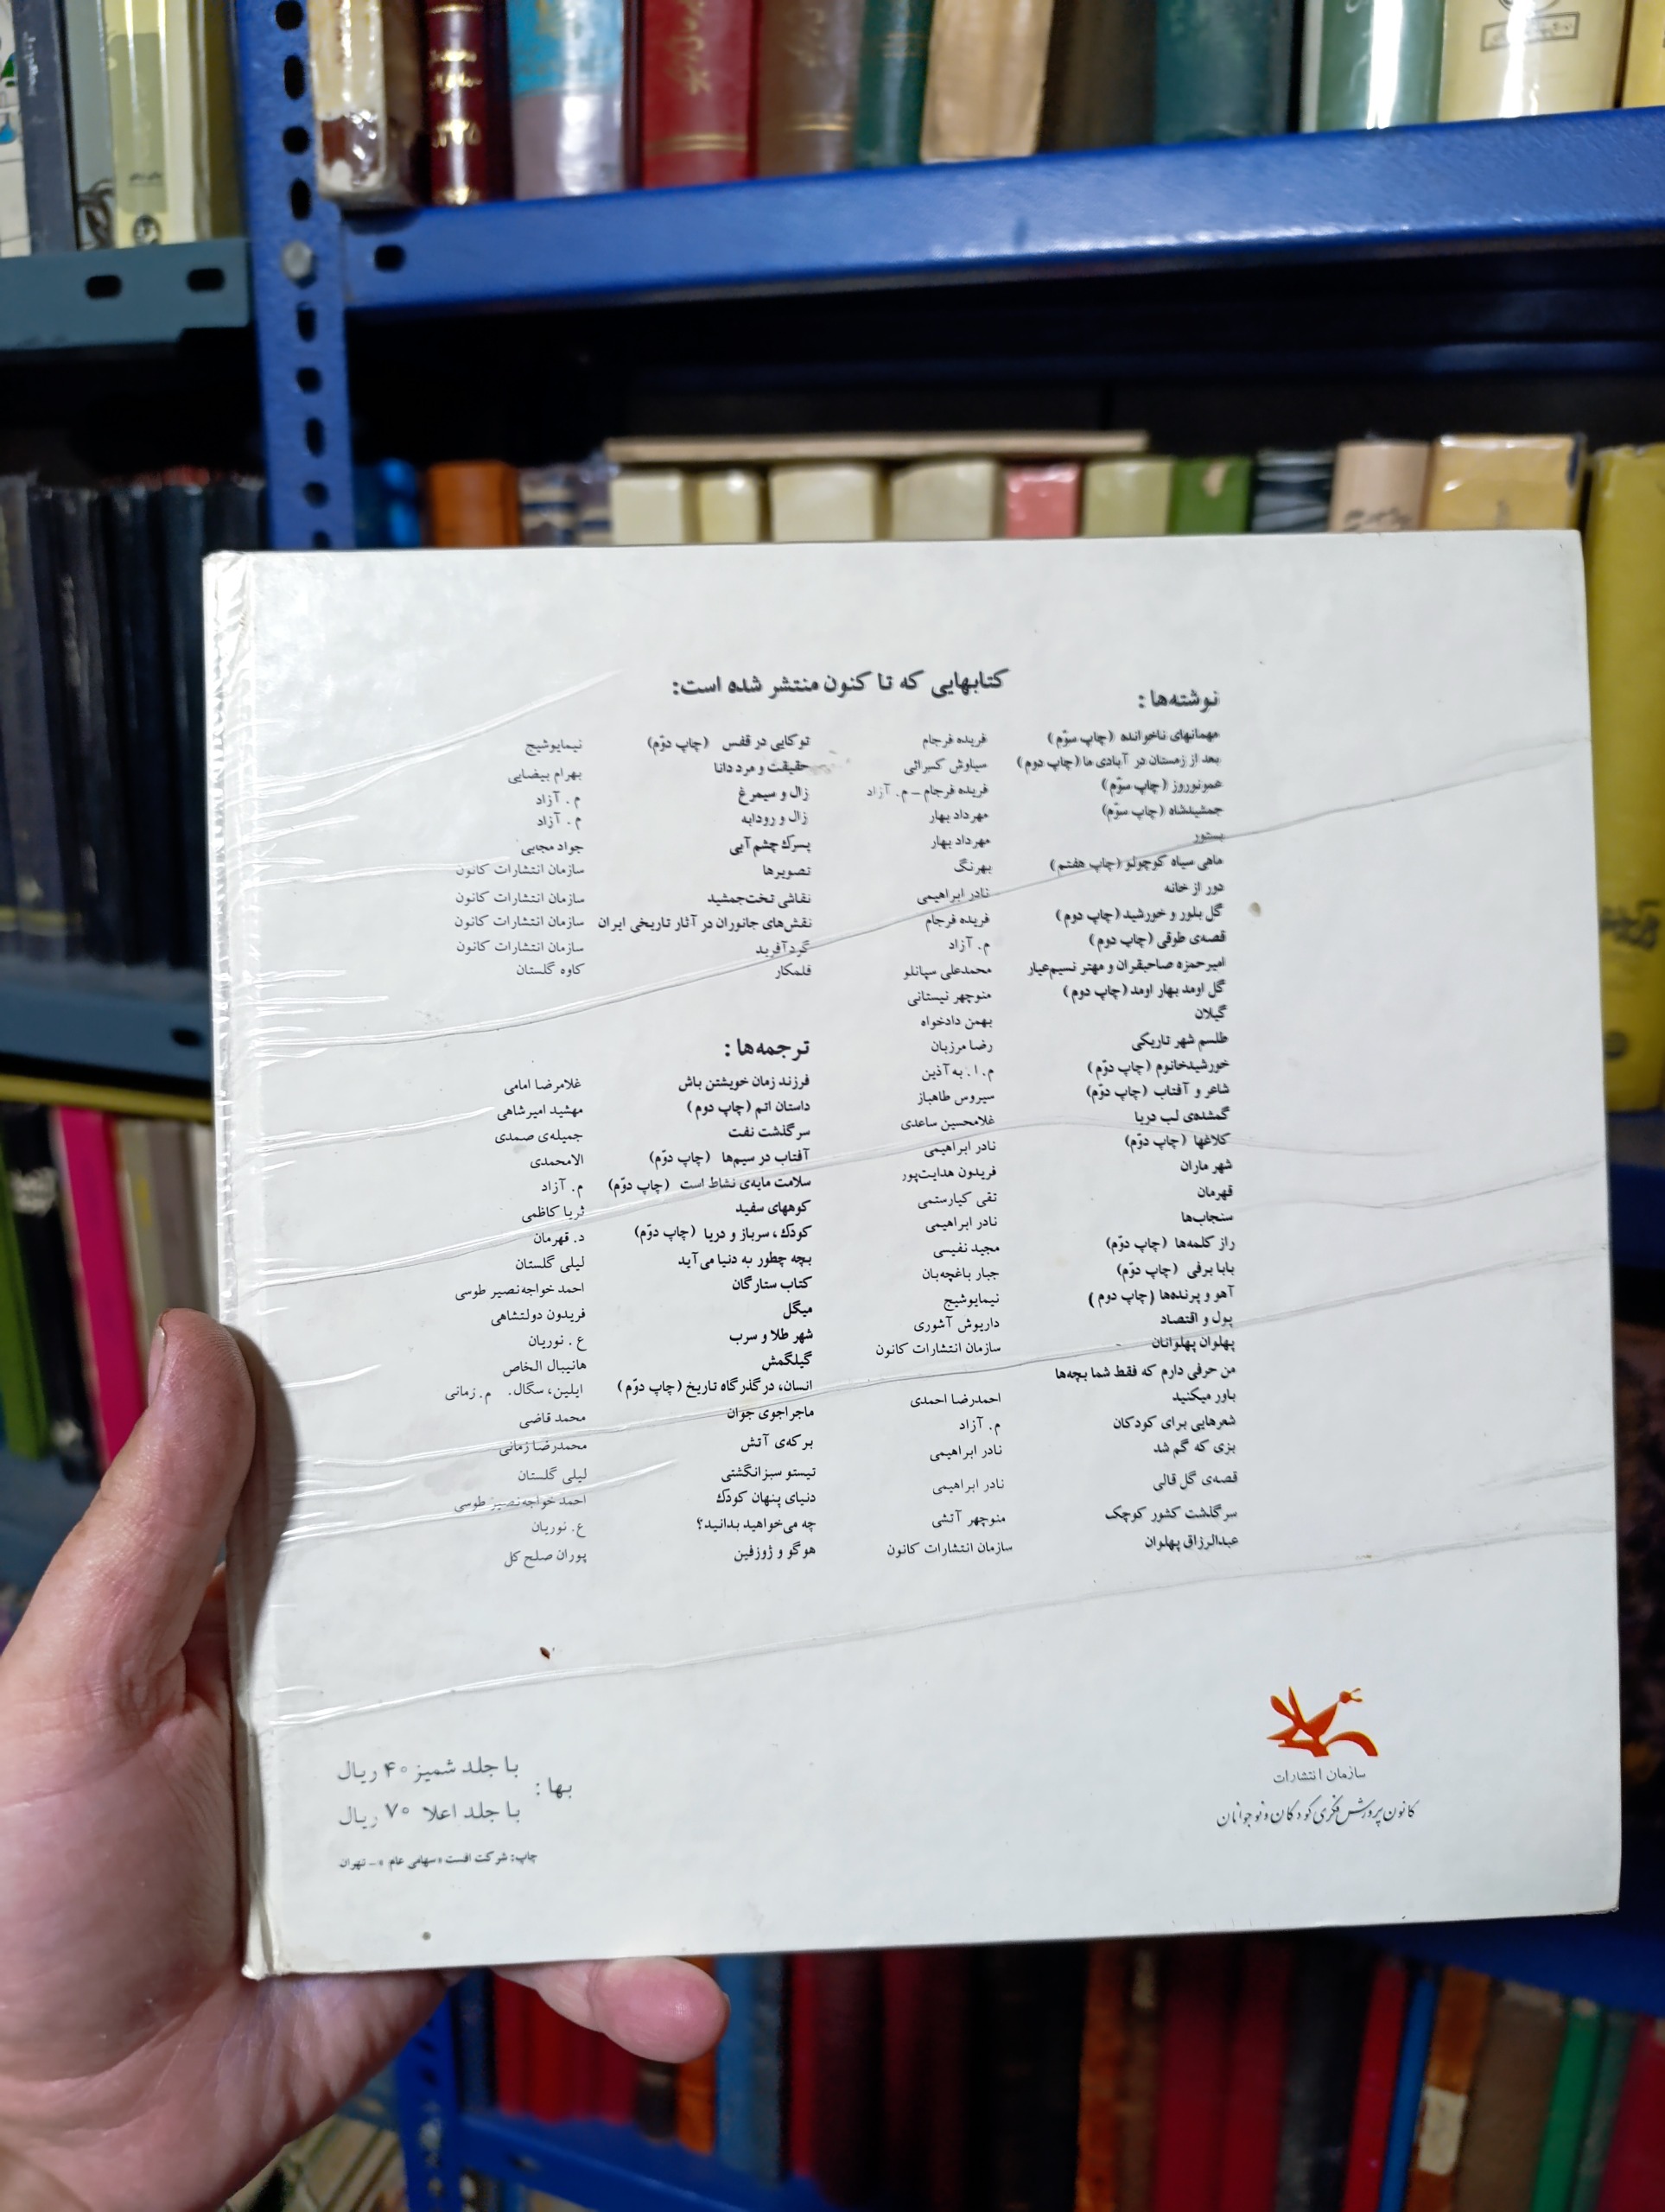 کتابهایی که تا کنون منتشر شده است:
نوشته‌ها:
مهمانهای ناخوانده (چاپ سوّم) فریده فرجام
بعد از زمستان در آبادی ما (چاپ دوم) سیاوش کسرائی
عمونوروز (چاپ سوّم) فریده فرجام – م. آزاد
جمشیدشاه (چاپ سوّم) مهرداد بهار
بستور مهرداد بهار
ماهی سیاه کوچولو (چاپ هفتم) بهرنگ
دور از خانه نادر ابراهیمی
گل بلور و خورشید (چاپ دوم) فریده فرجام
قصه‌ی طوقی (چاپ دوم) م. آزاد
امیرحمزه صاحبقران و مهتر نسیم‌عیار محمدعلی سپانلو
گل اومد بهار اومد (چاپ دوم) منوچهر نیستانی
گیلان بهمن دادخواه
طلسم شهر تاریکی رضا مرزبان
خورشیدخانوم (چاپ دوّم) م.ا. به‌آذین
شاعر و آفتاب (چاپ دوّم) سیروس طاهباز
گمشده‌ی لب دریا غلامحسین ساعدی
کلاغها (چاپ دوّم) نادر ابراهیمی
شهر ماران فریدون هدایت‌پور
قهرمان تقی کیارستمی
سنجاب‌ها نادر ابراهیمی
راز کلمه‌ها (چاپ دوّم) مجید نفیسی
بابا برفی (چاپ دوّم) جبار باغچه‌بان
آهو و پرنده‌ها (چاپ دوم) نیمایوشیج
پول و اقتصاد داریوش آشوری
پهلوان پهلوانان سازمان انتشارات کانون
من حرفی دارم که فقط شما بچه‌ها
باور میکنید احمدرضا احمدی
شعرهایی برای کودکان م. آزاد
بزی که گم شد نادر ابراهیمی
قصه‌ی گل قالی نادر ابراهیمی
سرگذشت کشور کوچک منوچهر آتشی
عبدالرزاق پهلوان سازمان انتشارات کانون
توکایی در قفس (چاپ دوّم) نیمایوشیج
حقیقت و مرد دانا بهرام بیضایی
زال و سیمرغ م. آزاد
زال و رودابه م. آزاد
پسرك چشم آبی جواد مجابی
تصویرها سازمان انتشارات کانون
نقاشی تخت‌جمشید سازمان انتشارات کانون
نقش‌های جانوران در آثار تاریخی ایران سازمان انتشارات کانون
گردآفرید سازمان انتشارات کانون
قلمکار کاوه گلستان
ترجمه‌ها:
فرزند زمان خویشتن باش غلامرضا امامی
داستان اتم (چاپ دوم) مهشید امیرشاهی
سرگذشت نفت جمیله‌ی صمدی
آفتاب در سیم‌ها (چاپ دوّم) الامحمدی
سلامت مایه‌ی نشاط است (چاپ دوّم) م. آزاد
کوههای سفید ثریا کاظمی
کودك، سرباز و دریا (چاپ دوّم) د. قهرمان
بچه چطور به دنیا می‌آید لیلی گلستان
کتاب ستارگان احمد خواجه‌نصیر طوسی
میگل فریدون دولتشاهی
شهر طلا و سرب ع. نوریان
گیلگمش هانیبال الخاص
انسان، در گذرگاه تاریخ (چاپ دوّم) ایلین، سگال. م. زمانی
ماجراجوی جوان محمد قاضی
برکه‌ی آتش محمدرضا زمانی
تیستو سبزانگشتی لیلی گلستان
دنیای پنهان کودك احمد خواجه‌نصیر طوسی
چه می‌خواهید بدانید؟ ع. نوریان
هوگو و ژوزفین پوران صلح کل
سازمان انتشارات
کانون پرورش فکری کودکان و نوجوانان
بها:
با جلد شمیز ۴۰ ریال
با جلد اعلا ۷۰ ریال
چاپ: شرکت افست «سهامی عام» – تهران